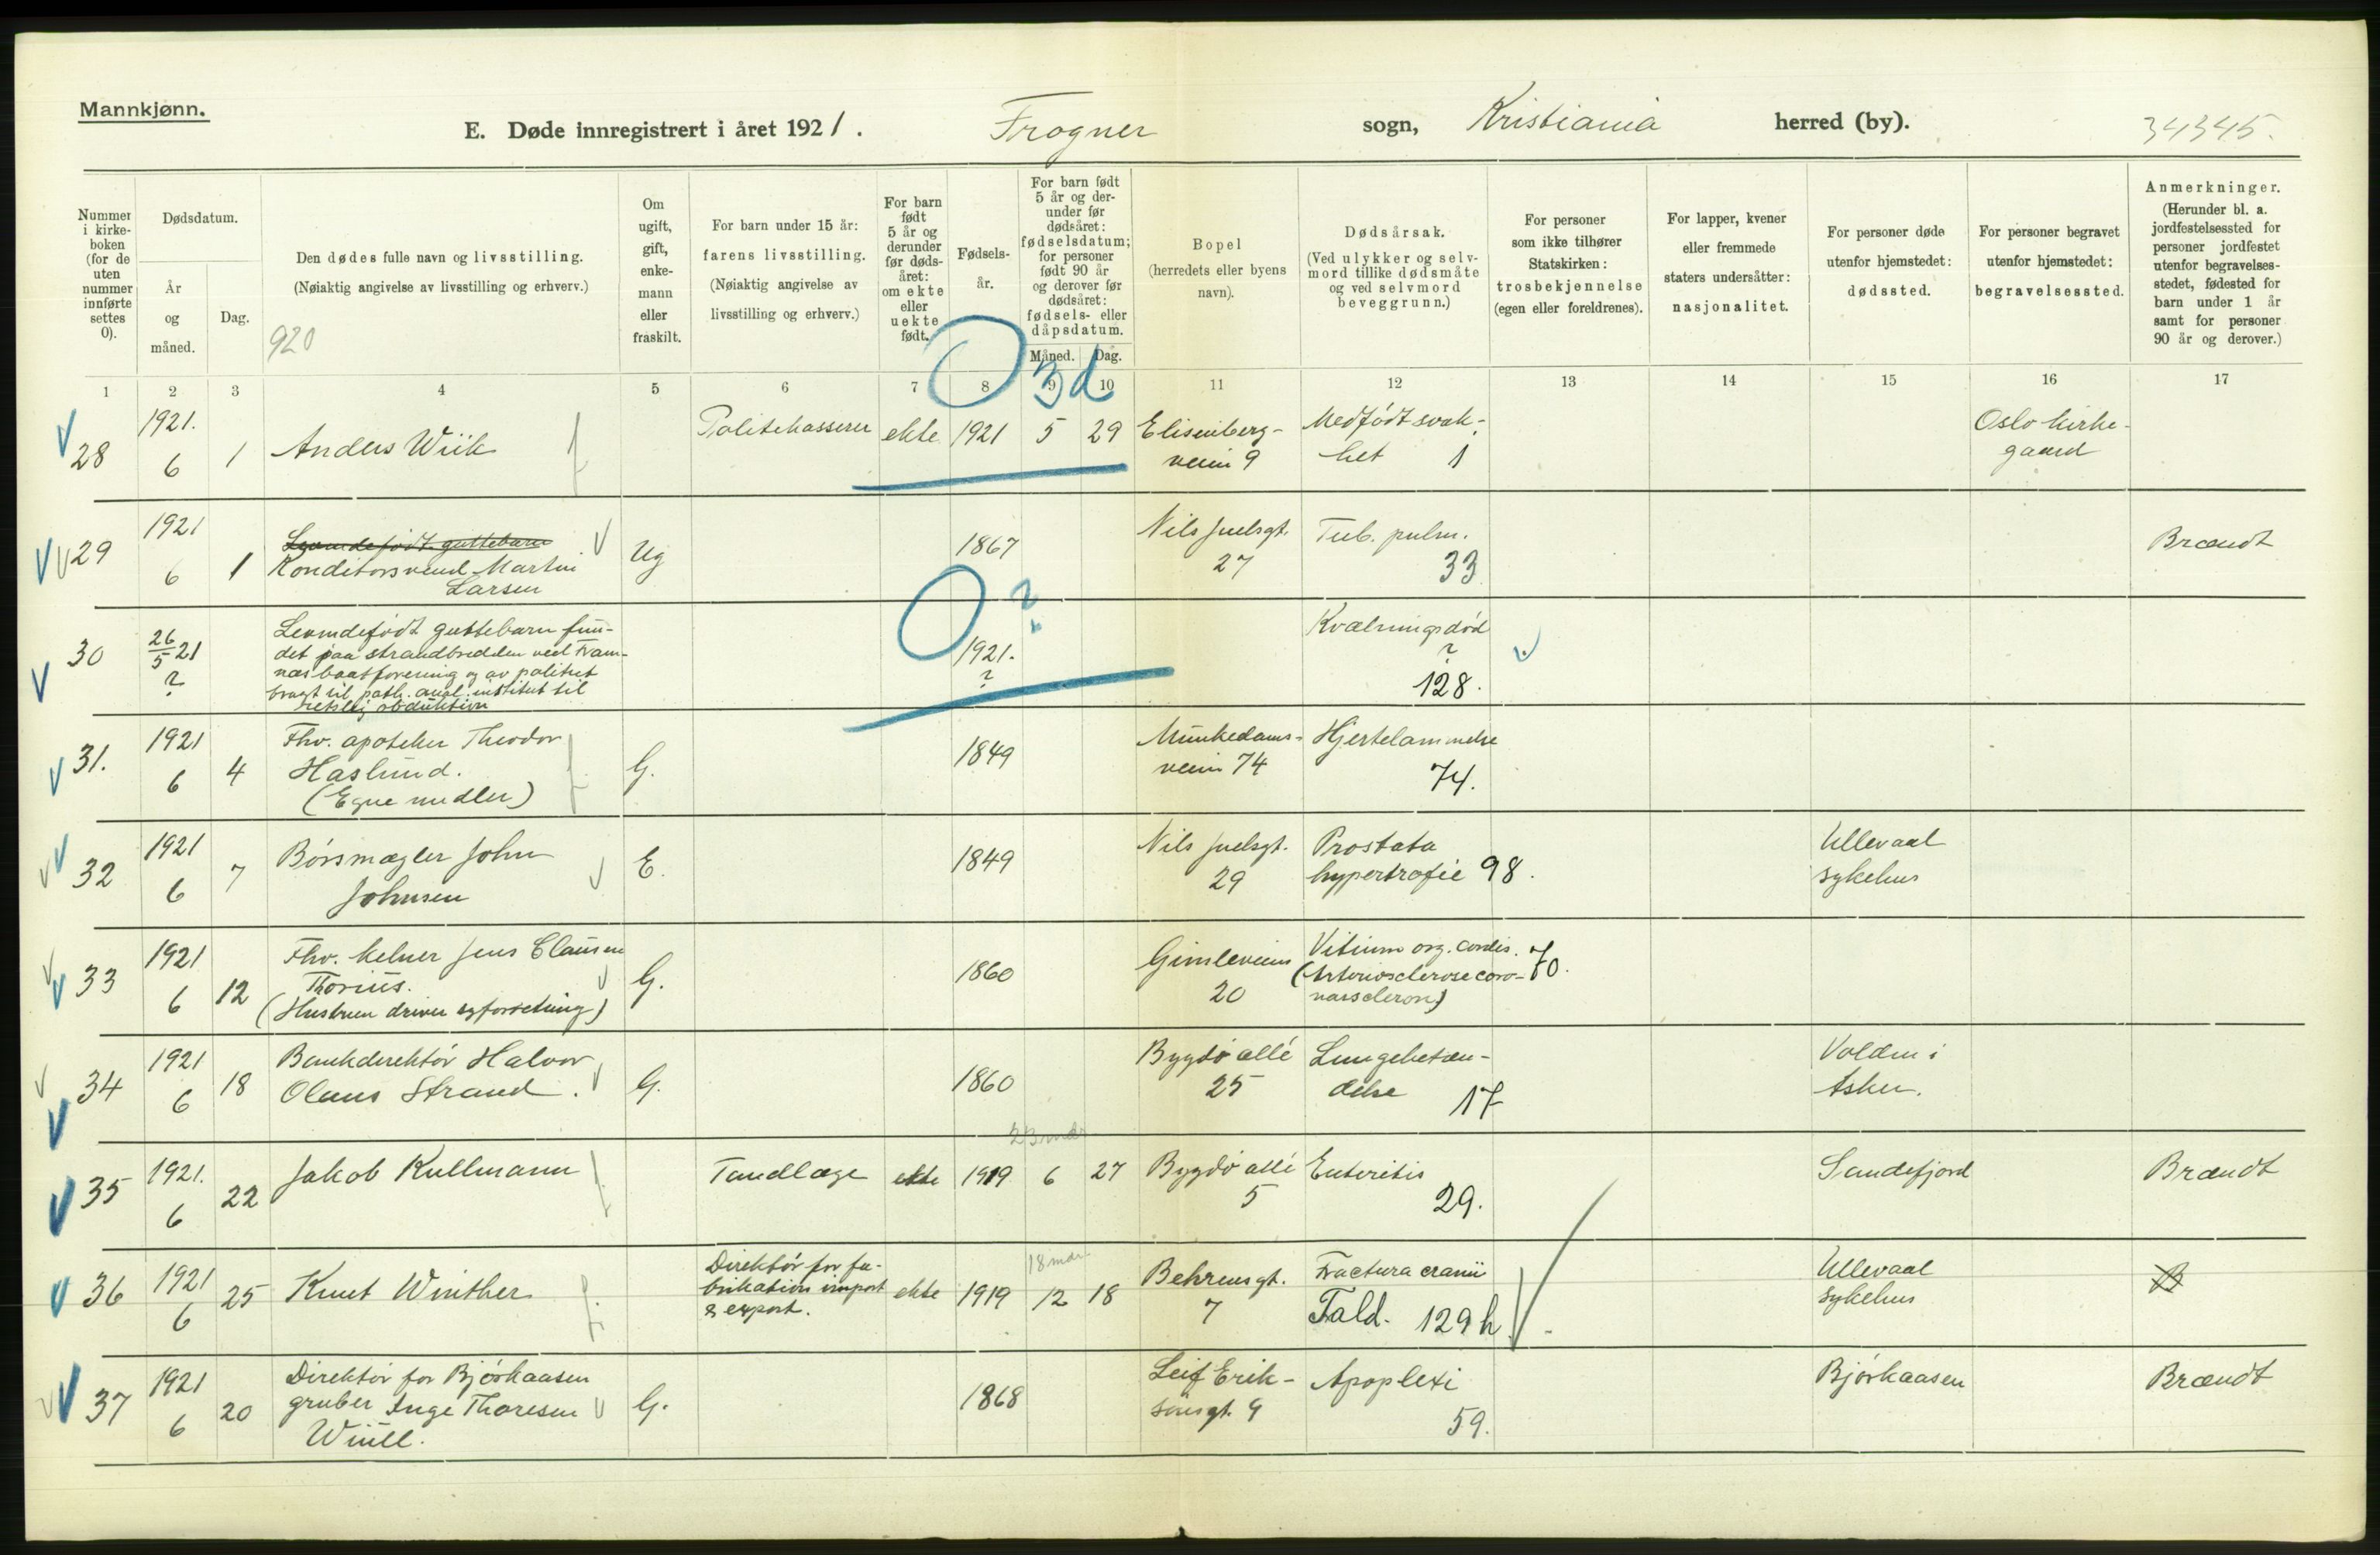 Mannkjønn.
E. Døde innregistrert i året 1921. Frogner sogn, Kristiania herred (by). 34345.
Nummer i kirke-boken (for de uten nummer innførte settes 0).
Dødsdatum.
År og måned.
Dag.
Den dødes fulle navn og livsstilling.
(Nøiaktig angivelse av livsstilling og erhverv.)
920
Om ugift, gift, enke-mann eller fraskilt.
For barn under 15 år:
farens livsstilling.
(Nøiaktig angivelse av livsstilling og erhverv.)
For barn født 5 år og derunder før døds-året: om ekte eller uekte født.
Fødsels-år.
For barn født 5 år og der-under før dødsåret: fødselsdatum; for personer født 90 år og derover før dødsåret: fødsels- eller dåpsdatum.
Måned. Dag.
Bopel
(herredets eller byens navn).
Dødsårsak.
(Ved ulykker og selv-mord tillike dødsmåte og ved selvmord beveggrunn.)
For personer som ikke tilhører Statskirken: trosbekjennelse (egen eller foreldrenes).
For lapper, kvener eller fremmede staters undersåtter: nasjonalitet.
For personer døde utenfor hjemstedet: dødssted.
For personer begravet utenfor hjemstedet: begravelsessted.
Anmerkninger.
(Herunder bl. a. jordfestelsessted for personer jordfestet utenfor begravelses-stedet, fødested for barn under 1 år samt for personer 90 år og derover.)
1 2 3 4 5 6 7 8 9 10 11 12 13 14 15 16 17
3d
28 1921. 6 1 Anders Wiik Politikasserer ekte 1921 5 29 Elisenberg-
veien 9 Medfödt svak-
het 1 Oslo kirke-
gaard
29 1921 6 1 Levendefödt guttebarn
Konditorsvend Martin
Larsen Ug 1867 Nils Juelsgt.
27 Tub. pulm.
33 Brændt
30 26/5 21 ? Levndefödt guttebarn fun-
det paa strandbredden ved Fram-
næs baatforening og av politiet
bragt til path. anat. institut til
retslig obduktion 1921. ? ? Kvælningsdöd
?
128.
31. 1921 6 4 Fhv. apoteker Theodor
Haslund.
(Egne midler) G. 1849 Munkedams-
veien 74 Hjertelammelse
74.
32 1921 6 7 Börsmægler John
Johnsen E. 1849 Nils Juelsgt.
29 Prostata
hypertrofie 98. Ullevaal
sykehus
33 1921 6 12 Fhv. kelner Jens Clausen
Thorius.
(Hustruen driver syforretning) G. 1860 Gimleveien
20 Vitium org. cordis. 70.
(Arteriosclerose coro-
narsclerose)
34 1921 6 18 Bankdirektör Halvor
Olaus Strand. G. 1860 Bygdö allé
25 Lungebetæn-
delse 17 Volden i
Asker.
35 1921. 6 22 Jakob Kullmann Tandlæge ekte 1919 6 27 23 mdr Bygdö allé
5 Enteritis
29. Sandefjord Brændt
36 1921 6 25 Knut Winther Direktör for fa-
brikation import
& export. ekte 1919 12 18 18 mdr. Behrensgt.
7 Fractura cranii
Fald. 129h Ullevaal
sykehus B
37 1921 6 20 Direktör for Björkaasen
gruber Inge Thoresen
Wiull. G. 1868 Leif Erik-
sönsgt. 9 Apoplexi
59. Björkaasen Brændt